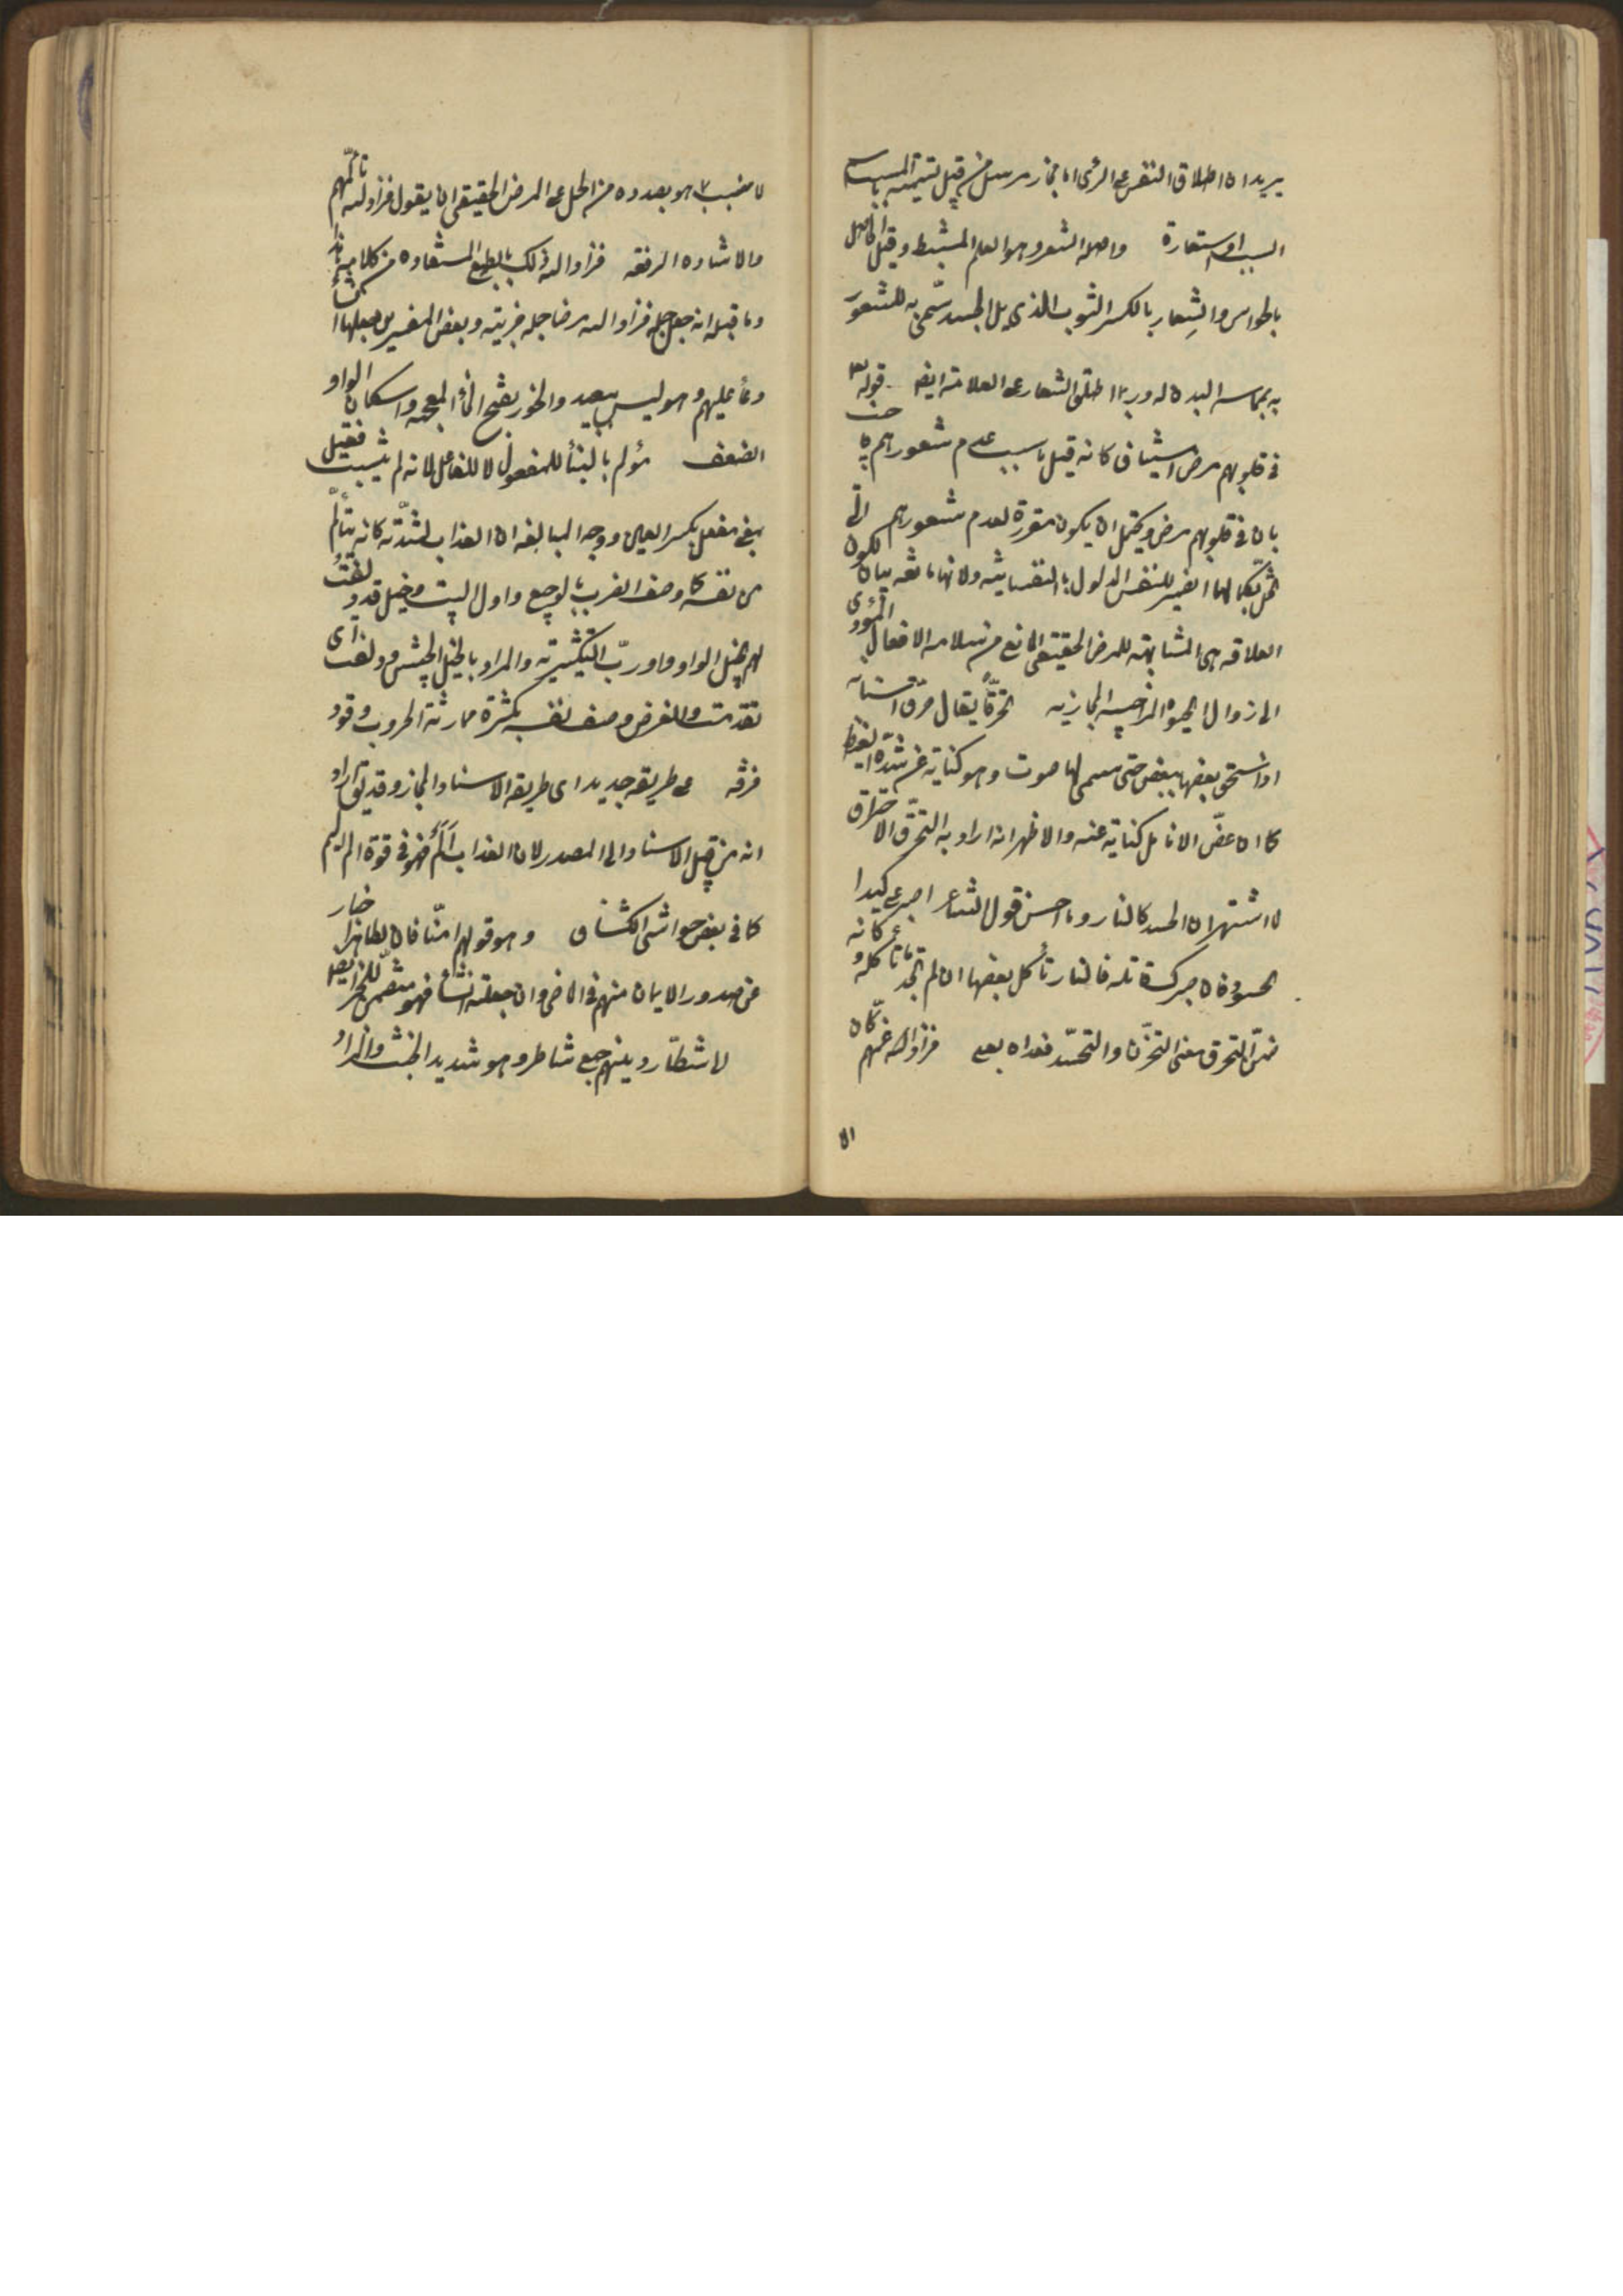 يريد ان اطلاق النفس على الرأى اما مجاز مرسل من قبيل تسمية المسبب باسم
السبب او استعارة واصله الشعر وهو العلم وقيل الحاصل
بالحواس والشعار بالكسر الثوب الذى يلى الجسد سمى به للشعور
به بمماسه البدن له وربما اطلق الشعار على العلامة ايضا قوله تعالى
فى قلوبهم مرض استيناف كانه قيل ما سبب عدم شعورهم
بان فى قلوبهم مرض ويحتمل ان يكون مقررة لعدم شعورهم
تخل بكمالها الضمير للنفس المدلول بالنفسانية ولانها مانعه بيان لكون
العلاقه هى المشابهة للمرض الحقيقى المانع من سلامه الافعال المؤدى
الى زوال الحيوة المجازيه تحرقا يقال حرق اسنانه
اذا سحق بعضها ببعض حتى سمع لها صوت وهو كناية عن شدة الغيظ
كما ان عض الانامل كناية عنه والاظهر انه اراد به التحرق الاحتراق
لاشتهار ان الحسد كالنار وما احسن قول الشاعر اصبر على كيد
الحسود فان صبرك قاتله فالنار تأكل بعضها ان لم تجد ما تأكله وكانه
ضمن التحرق معنى التحزن والتحسر فعداه بعلى فزاد الله غمهم كان
الانسب بما هو بصدده من الحمل على المرض الحقيقى ان يقول فزاد الله تألمهم
والاشاده الرفعه فزاد الله ذلك بالطبع المستفاد من كلامه
وما قبله انه جعل جملة فزادهم الله مرضا جمله خبرية وبعض المفسرين جعلها
دعاء عليهم وهو ليس ببعيد والخور بفتح الخاء المعجمه واسكان الواو
الضعف مؤلم بالبناء للمفعول لا للفاعل لانه لم يثبت فعيل
بمعنى مفعل بكسر العين ووجه المبالغه ان العذاب لشدته كانه يتألم
من نفسه كما وصف الضرب بالوجيع واول البيت وخيل قد دلفت
لهم بخيل الواو واو رب التكثيرية والمراد بالخيل الجيش ودلفت اى
تقدمت والغرض وصف نفسه بكثرة ممارسة الحروب وقود
فرقه على طريقه جد جده اى طريقه الاسناد المجازى وقد يقال اراد
انه من قبيل الاسناد الى المصدر لان العذاب الم فهو فى قوة الم اليم
كما فى بعض حواشى الكشاف وهو قولهم امنا فان اخبار
عن صدور الايمان منهم فى الماضى وان جعلته انشاء فهو متضمن للخبر ايضا
لا شطار دينهم جمع شاطر وهو شديد الخبث والمراد